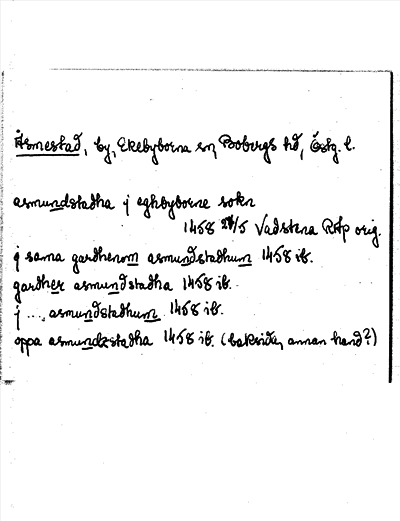 Åsmestad, by, Ekebyborna sn, Bobergs hd, Östg. l.
asmundstadha j eghbyborne sokn
1458 24/5 Vadstena RAp orig.
j sama gardhenom asmundstadhum 1458 ib.
gardher asmundstadha 1458 ib.
j ... asmundstadhum 1458 ib.
oppa asmundzstadha 1458 ib. (baksida, annan hand?)